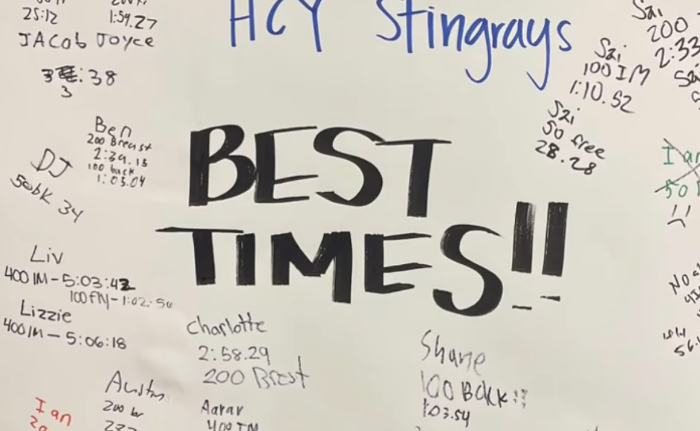 25:12
1:59.27
JACob JOyce
:38
3
HCY Stingrays
Sai
200
2:33
Sai
100 IM
1:10.52
Sai
50 free
28.28
Ben
200 Breast
2:39.13
100 back
1:03.04
DJ
50bK 34
BEST
TIMES!!
Liv
400 IM-5:03:42
100 FLY-1:02.50
Lizzie
400 IM-5:06:18
Charlotte
2:58.29
200 Brest
Shane
100 BACK!!
1:03.54
Austin
200 br
Aarav
400 IM
Ian